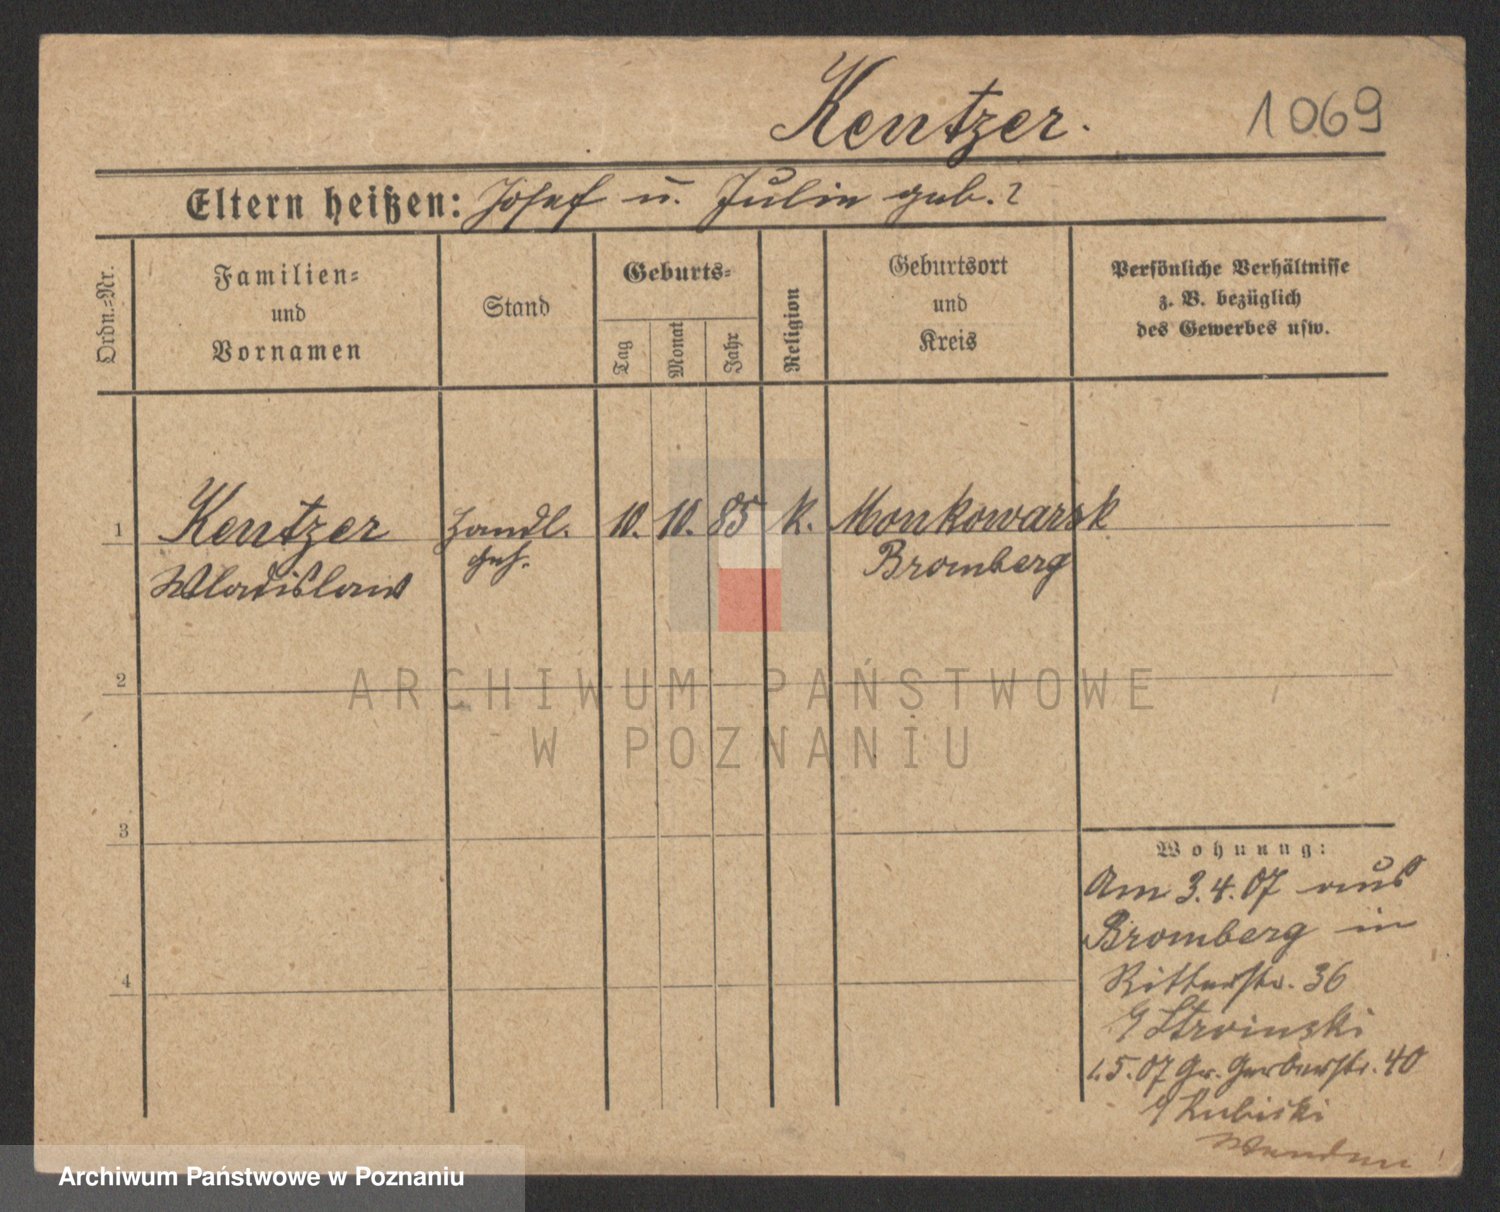 Kentzer.
1069
Eltern heißen: Josef u. Julie geb. ?
Ordn.-Nr.
Familien-
und
Vornamen
Stand
Geburts-
Tag
Monat
Jahr
Religion
Geburtsort
und
Kreis
Persönliche Verhältnisse
z. B. bezüglich
des Gewerbes usw.
1 Kentzer Handl. 10. 10. 85 k. Monkowarsk
Wladislaus geh. Bromberg
2
3
4
Wohnung:
Am 3.4.07 aus
Bromberg in
Ritterstr. 36
Stroinski
1.5.07 Gr. Gerberstr. 40
Lubiski
Wenden!
ARCHIWUM PAŃSTWOWE
W POZNANIU
Archiwum Państwowe w Poznaniu